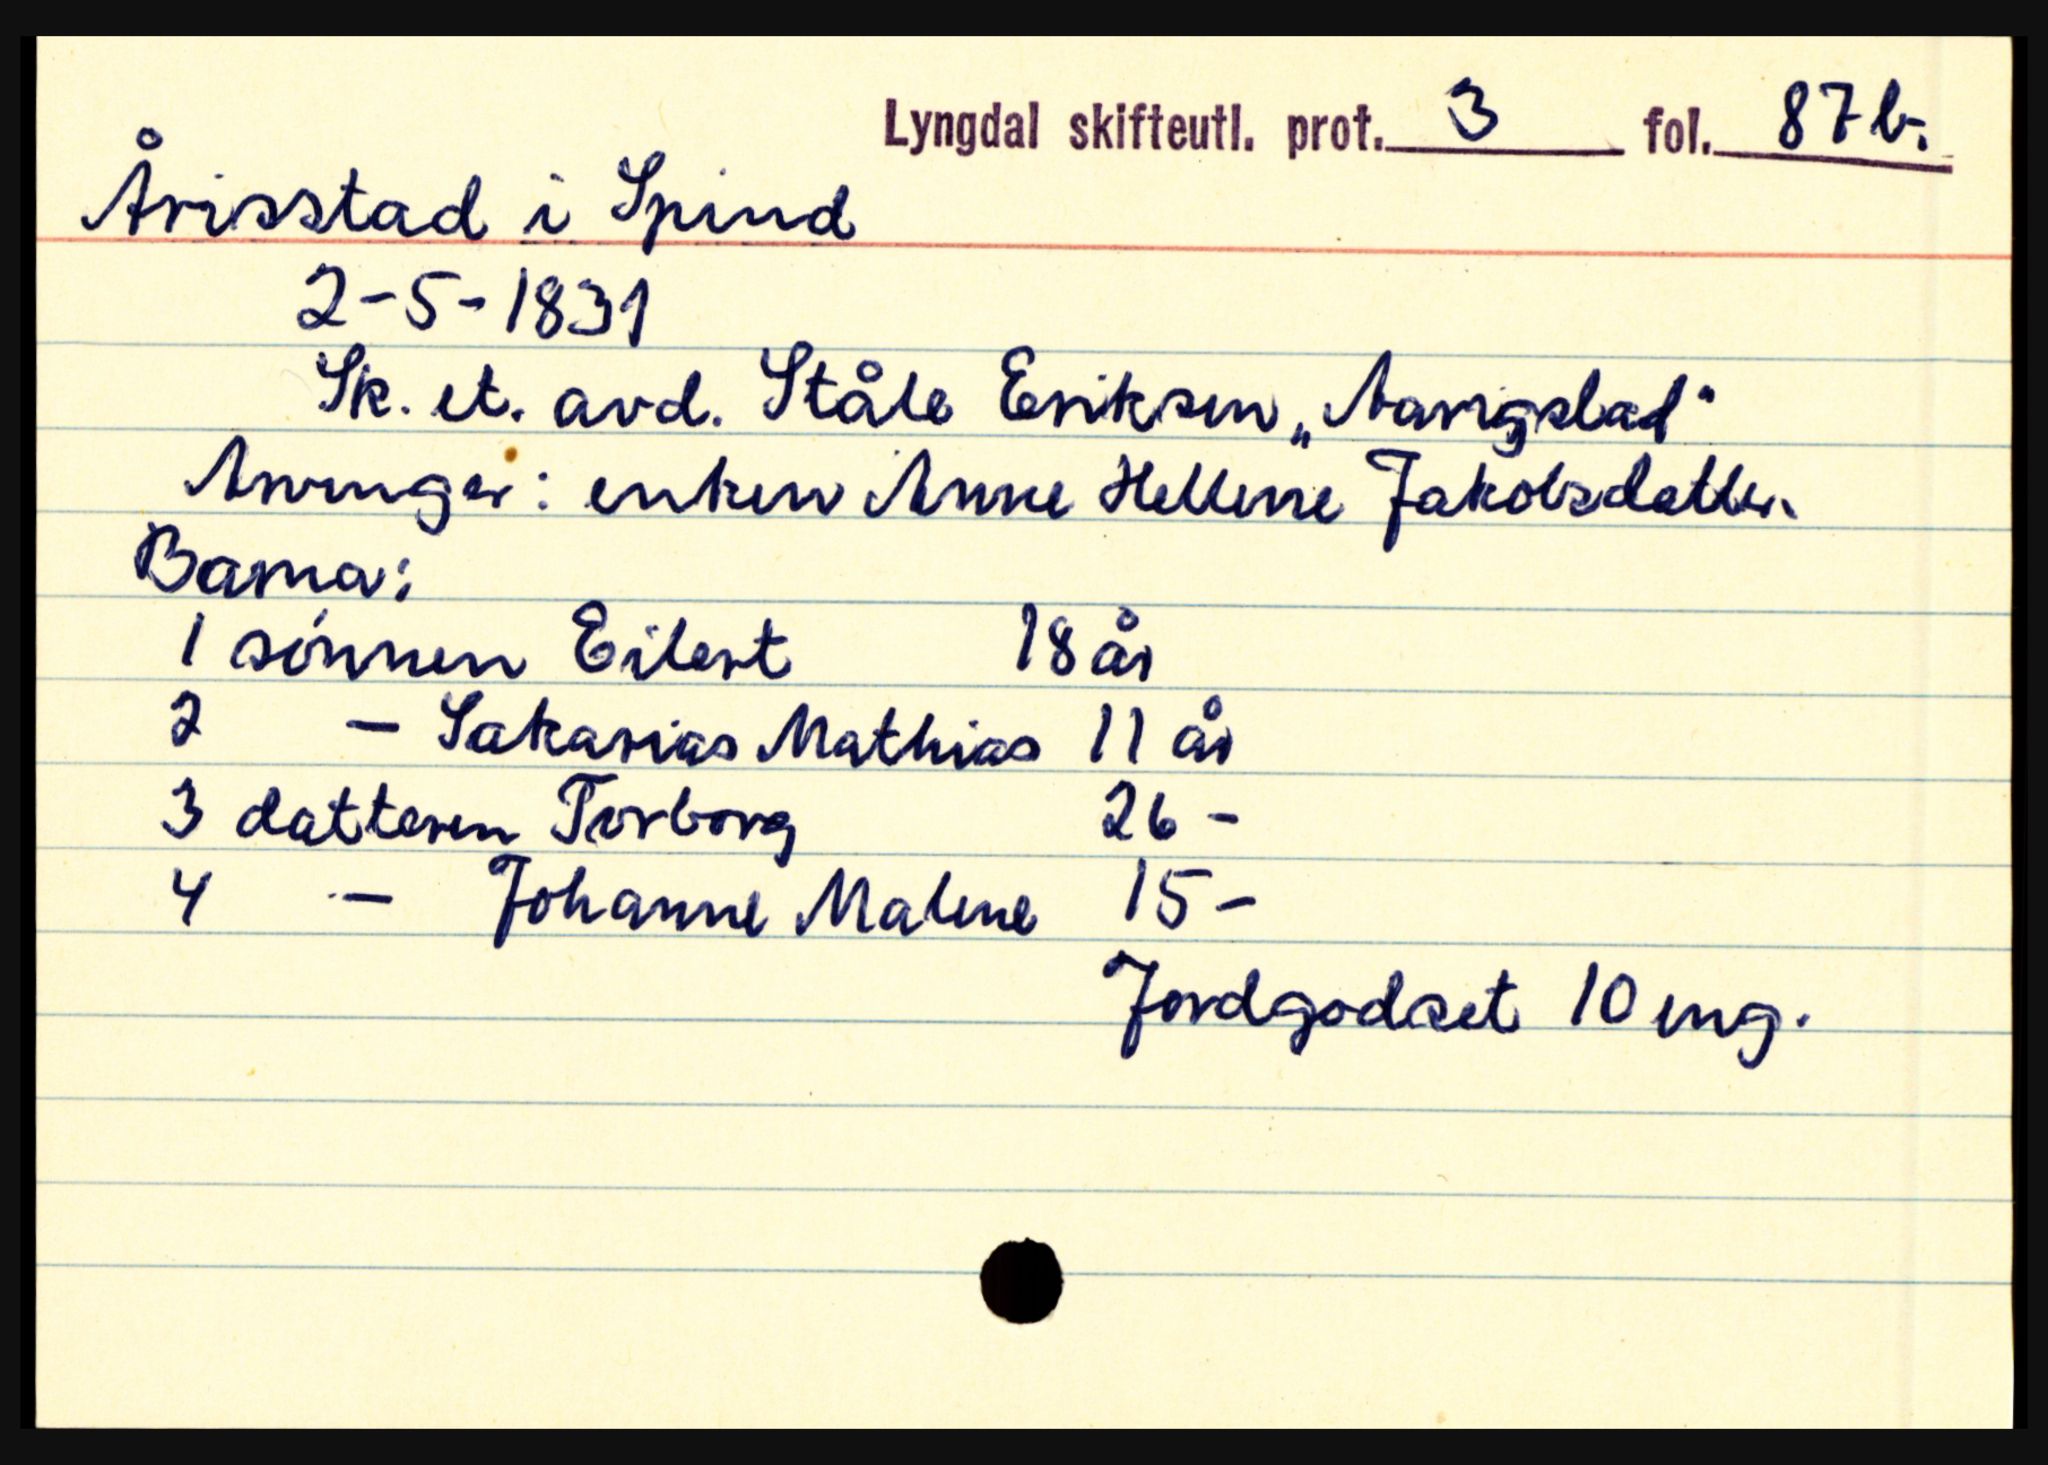 Lyngdal skifteutl. prot. 3 fol. 87b.
Årisstad i Spind
2-5-1831
Sk. et. avd. Ståle Eriksen „Aarigstad"
Arvinger: enken Anne Hellene Jakobsdatter.
Barna:
1 sønnen Eilert 18 år
2 — Sakarias Mathias 11 år
3 datteren Torborg 26 -
4 — Johanne Malene 15 -
Jordgodset 10 eng.